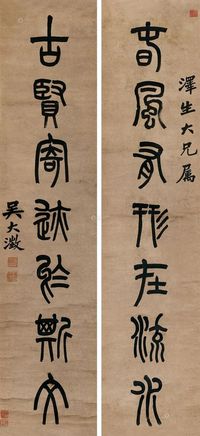 澤生大兄屬
春風有形在流水
古賢寄迹於斯文
吳大澂